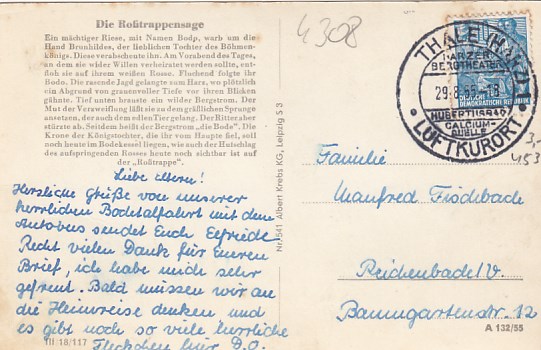 Die Roßtrappensage
Ein mächtiger Riese, mit Namen Bodo, warb um die
Hand Brunhildes, der lieblichen Tochter des Böhmen-
königs. Diese verabscheute ihn. Am Vorabend des Tages,
an dem sie wider Willen verheiratet werden sollte, ent-
floh sie auf ihrem weißen Rosse. Fluchend folgte ihr
Bodo. Die rasende Jagd gelangte zum Harz, wo plötzlich
ein Abgrund von grauenvoller Tiefe vor ihren Blicken
gähnte. Tief unten brauste ein wilder Bergstrom. Der
Mut der Verzweiflung läßt sie zu dem gräßlichen Sprunge
ansetzen, der auch dem edlen Tier gelang. Der Ritter aber
stürzte ab. Seitdem heißt der Bergstrom „die Bode". Die
Krone der Königstochter, die ihr vom Haupte fiel, soll
noch heute im Bodekessel liegen, wie auch der Hufschlag
des aufspringenden Rosses heute noch sichtbar ist auf
der „Roßtrappe".
Liebe Eltern!
Herzliche Grüße von unserer
herrlichen Bodetalfahrt mit dem
Autobus sendet Euch Elfriede
Recht vielen Dank für Eueren
Brief, ich habe mich sehr
gefreut. Bald müssen wir an
die Heimreise denken und
es gibt noch so viele herrliche
Fleckchen hier D.O.
III/18/117
Nr. 541 Albert Krebs KG, Leipzig S 3
4308
THALE (HARZ) 1
HARZER
BERGTHEATER
29.8.
HUBERTUSBAD
CALCIUM-
QUELLE
LUFTKURORT
DEUTSCHE
DEMOKRATISCHE REPUBLIK
3,-
453
Familie
Manfred Fischbach
Reichenbach/V.
Baumgartenstr. 12
A 132/55